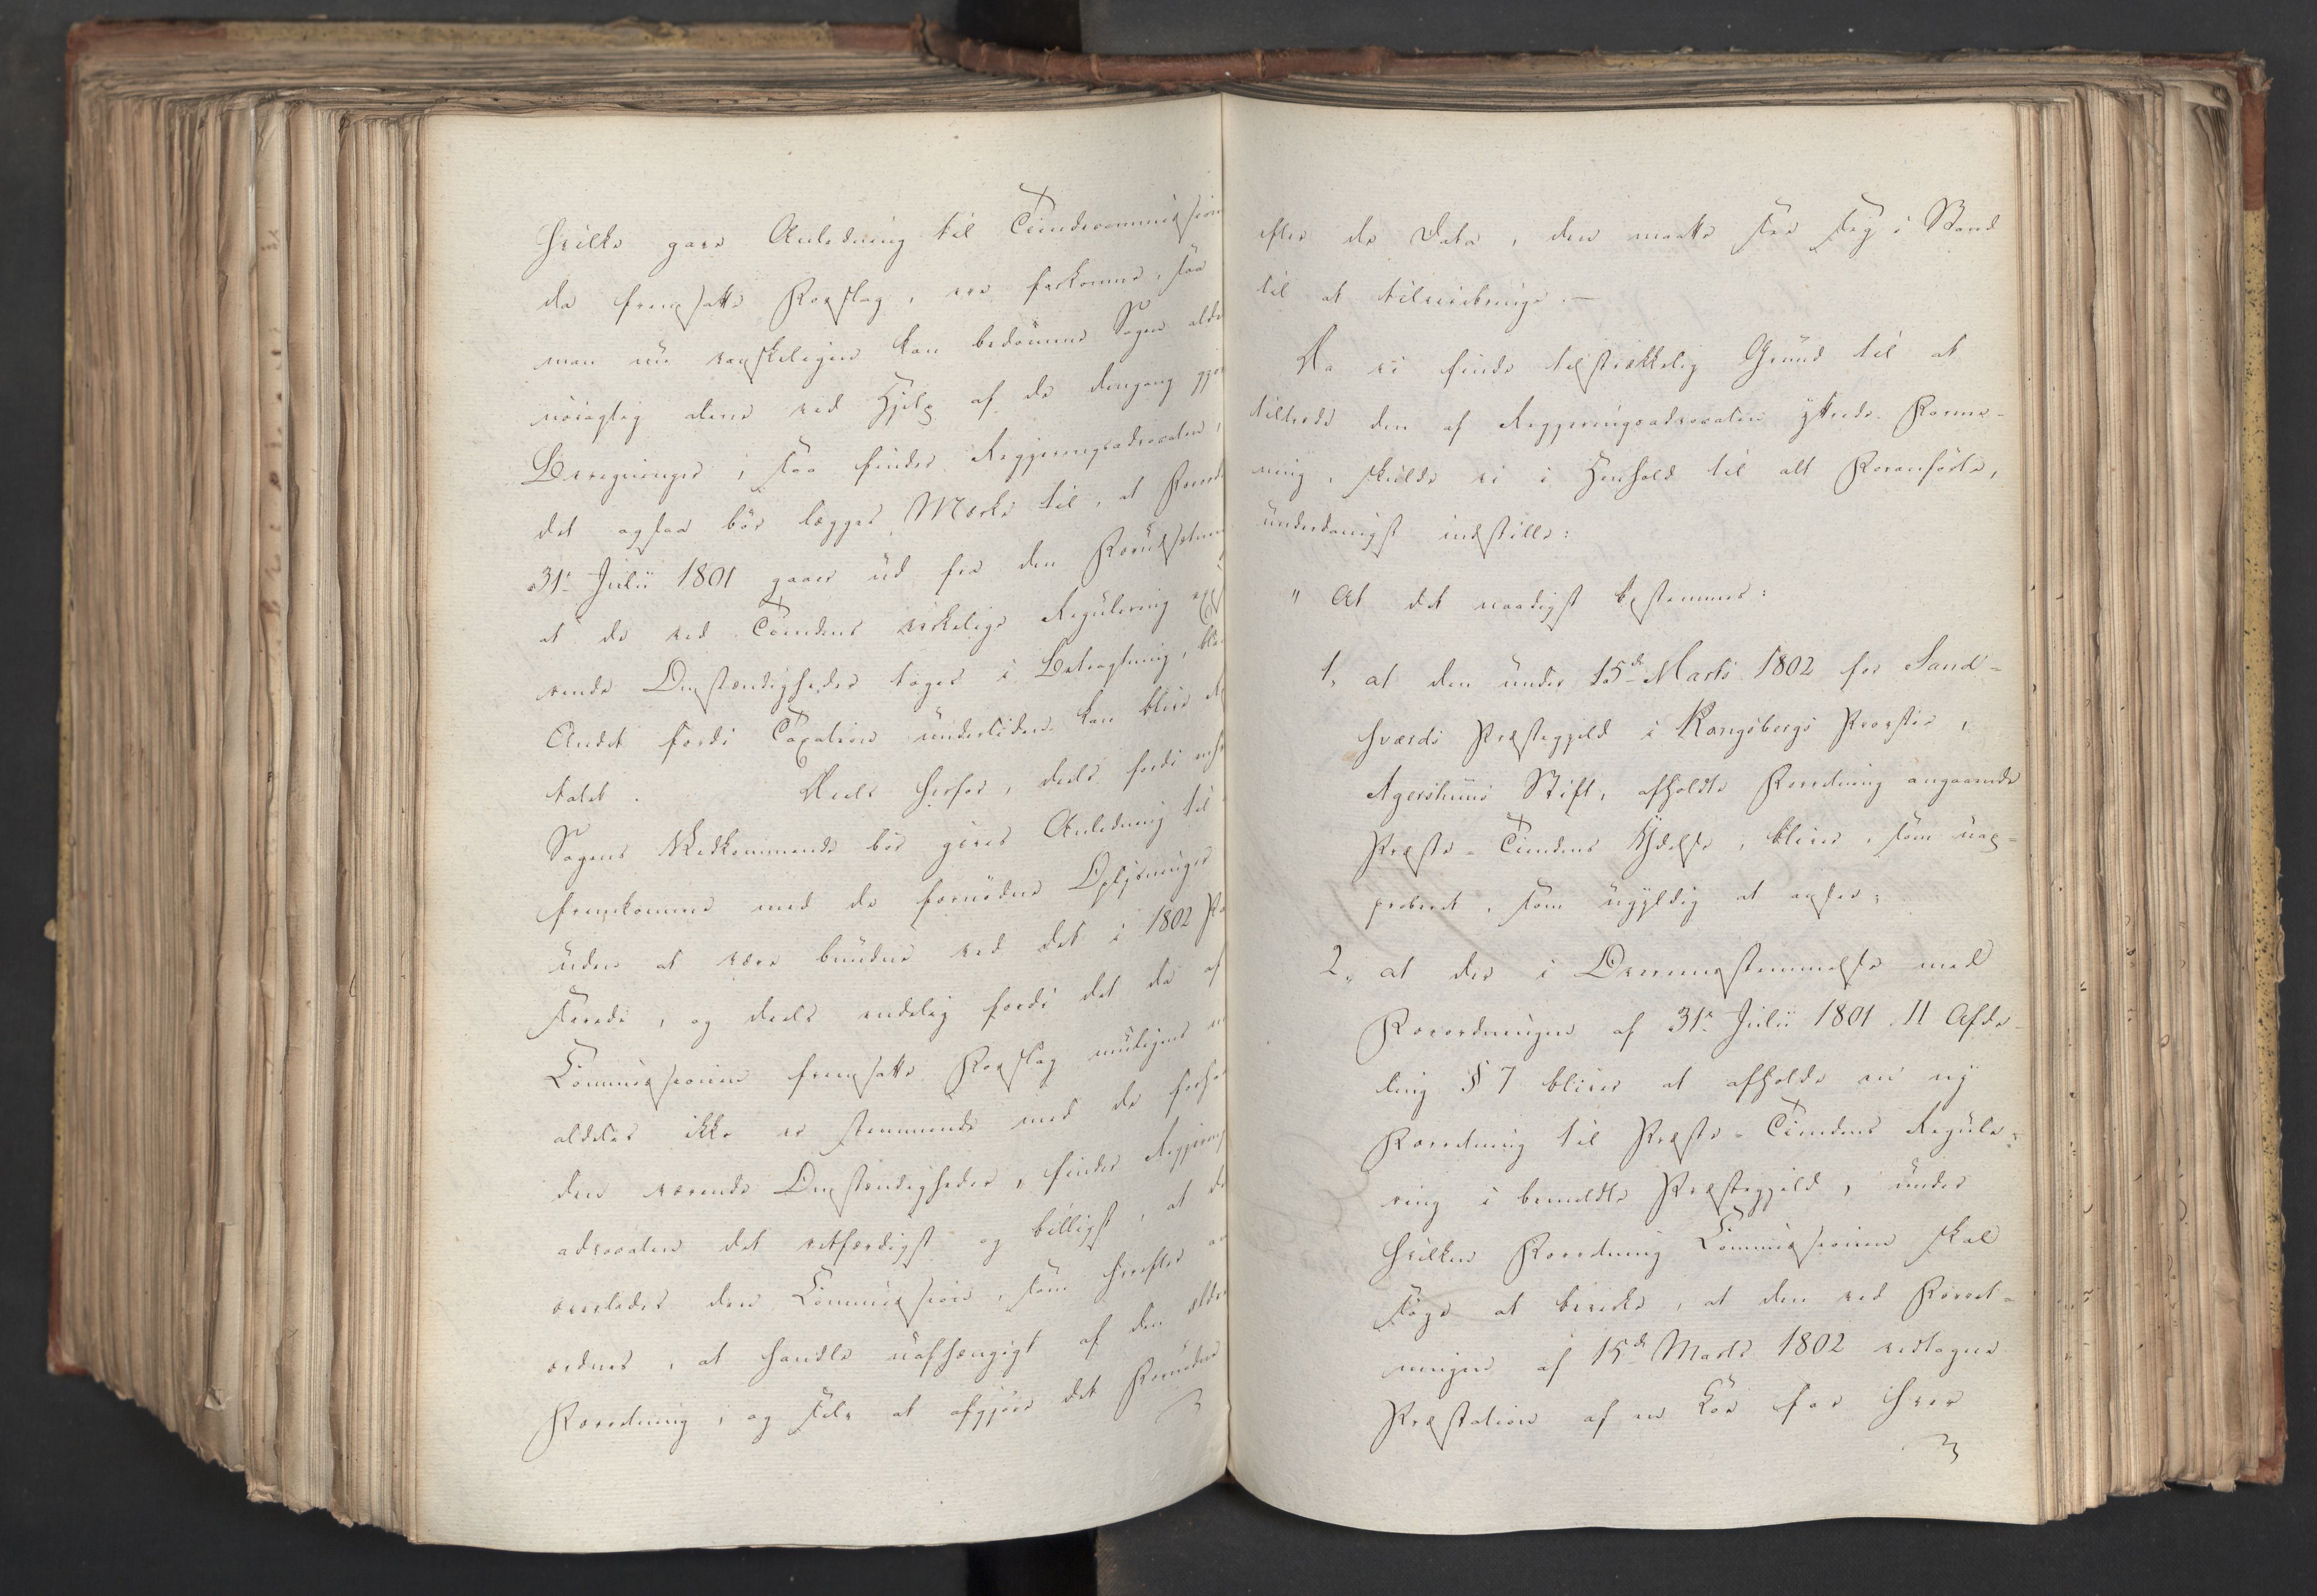 hvilke gave Anledning til Tiendecommission
da fremsatte Forslag, ere forkomne, saa
man nu vanskeligen kan bedømme Sagen alde
nøiagtig alene ved Hjelp af de dengang gjor
Beregninger; saa finder Regjeringsadvocaten,
det ogsaa bør lægges Mærke til, at Forord
31te Julii 1801 gaaer ud fra den Forudsætnin
at de ved Tiendens virkelige Regulering exi
rende Omstændigheder tages i Betragtning, bla
Andet fordi Taxation undertiden kan blive
talet. Deels herfor, deels fordi enh
Sagens Vedkommende bør gives Anledning til
fremkomme med de fornødne Oplysninger
uden at være bundne ved det i 1802 Pa
serede, og deels endelig fordi det da af
Commissionen fremsatte Forslag muligens
aldeles ikke er stemmende med de forha
den værende Omstændigheder, finder Regjerings
advocaten det retfærdigst og billigst, at de
overlades den Commission, som herefter
ordnes, at handle uafhængigt af den ælder
Forretning, og selv at afgjøre det Fornødne
efter de Data, den maatte see sig i Stand
til at tilveiebringe.—
Da vi finde tilstrækkelig Grund til at
tiltræde den af Regjeringsadvocaten yttrede Forme-
ning, skulde vi i Henhold til alt Foranførte,
underdanigst indstille:
" At det naadigst bestemmes:
1, at den under 15de Marts 1802 for Sand-
sværds Præstegjeld i Kongsbergs Provstie,
Agershuus Stift, afholdte Forretning angaaende
Præste-Tiendens Ydelse, bliver, som uap-
proberet, som ugyldig at ansee;
2, at der i Overensstemmelse med
Forordningen af 31te Julii 1801 II Afde-
ling § 7 bliver at afholde en ny
Forretning til Præste-Tiendens Regule-
ring i bemeldte Præstegjeld, under
hvilken Forretning Commissionen skal
søge at bevirke, at den ved Forret-
ningen af 15de Marts 1802 vedtagne
Præstation af en Koe for hver